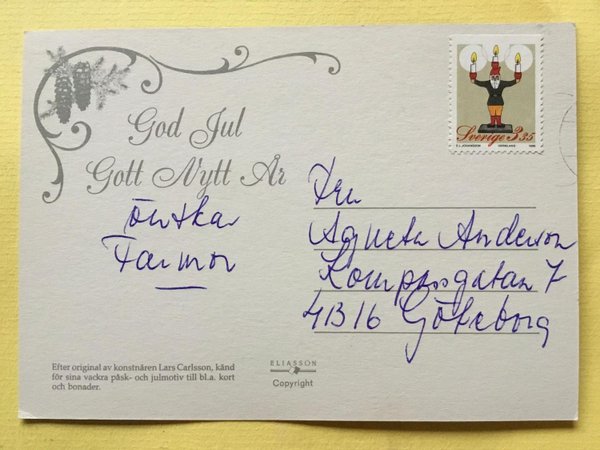 God Jul
Gott Nytt År
önskar
Farmor
Sverige 3.35
Fru
Agneta Anderson
Kompassgatan 7
413 16 Göteborg
Efter original av konstnären Lars Carlsson, känd
för sina vackra påsk- och julmotiv till bl.a. kort
och bonader.
ELIASSON
Copyright